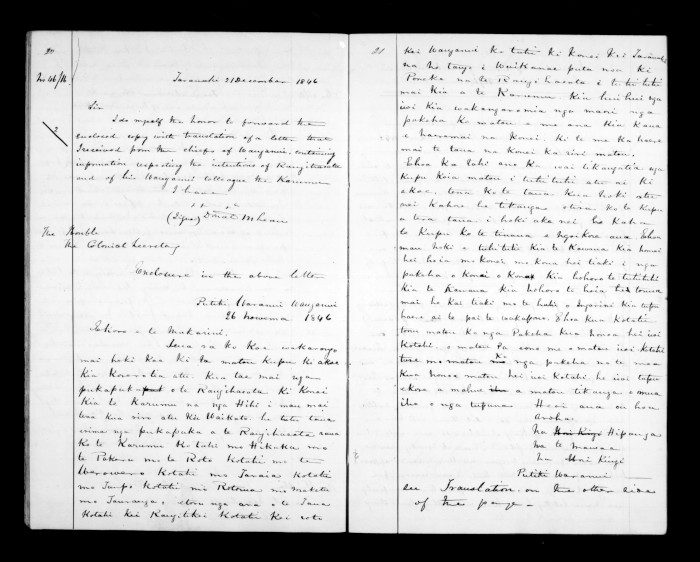 20
No 46/16
Taranaki 21 December 1846
Sir
2
I do myself the honor to forward the
enclosed copy with translation of a letter that
I received from the chiefs of Wanganui, containing
information respecting the intentions of Rangihaeata
and of his Wanganui colleague the Karamu
I have
(Signed) Donald McLean
The Honble
the Colonial Secretary
Enclosure in the above letter
Putiki Waranui Wanganui
26 Nowema 1846
E hoa e te Makarini.
mai hoki Koe ki
Kia Korerotia atu. Kua tae mai nga
pukapuka o te Rangihaeata Ki Konei
Kia te Karamu na nga Hihi i mau mai
kua riro atu Kia Waikato he tutu taua
enima nga pukapuka a te Rangihaeata
Ko te Karamu Kotahi mo Hikaka mo
te Pakoro mo te Roto Kotahi mo te
Werowero Kotahi mo Taraia Kotahi
mo Kotahi mo Rotorua mo Maketu
mo Tauranga, nga ara o te Taua
Kotahi Kei Rangitikei Kotahi Kei
21
Kei Wanganui Ko tutu ki Konei Kei Taranaki
na te tangi i Waikanae puta noa Ki
Poneke na te Rangihaeata i tuhituhi
mai Kia a te Karamu Kia huihui nga
iwi Kia nga maori nga
pakeha Ko matou e mea ana Kia Kaua
e haeremai na Konei. Ki te mea Ka haere
mai te taua na Konei Ka riri matou.
E hoa Ka tahi ano Ka
Kupu Koia matou i tuhituhi atu ai Ki
a Koe. Ko te taua Kua hoki atu
nei Kahore he tikanga otira Ko te Kupu
a tera taua i hoki ake nei
te Kupu Ko te tinana e ngaikore ana. E hoa
mau hoki e tuhituhi Kia te Kawana Kia homai
hei hoia mo Konei mo Kona hei tiaki i nga
pakeha o Konei o Kona Kia hohoro te tuhituhi
Kia te Kawana Kia hohoro te hoia te tonoa
mai he Kai tiaki mo te hahi o Ingarani Kia tupu
haere ai te pai te wakapono. E hoa Kua Kotahi
tonu matou Ko nga Pakeha Kua honoa hei iwi
Kotahi. o matou Pa
mo matou nga pakeha na te mea
Kua honoa matou hei iwi Kotahi he iwi tupu
ekore e mahue a matou tikanga o mua
iho o nga tupuna. Heoi ano e hoa
Aroha.
Na Honi Kingi Hipango
Na te Mawae
Na Honi Kingi
Putiki Waranui
see Translation on the other side
of the page -